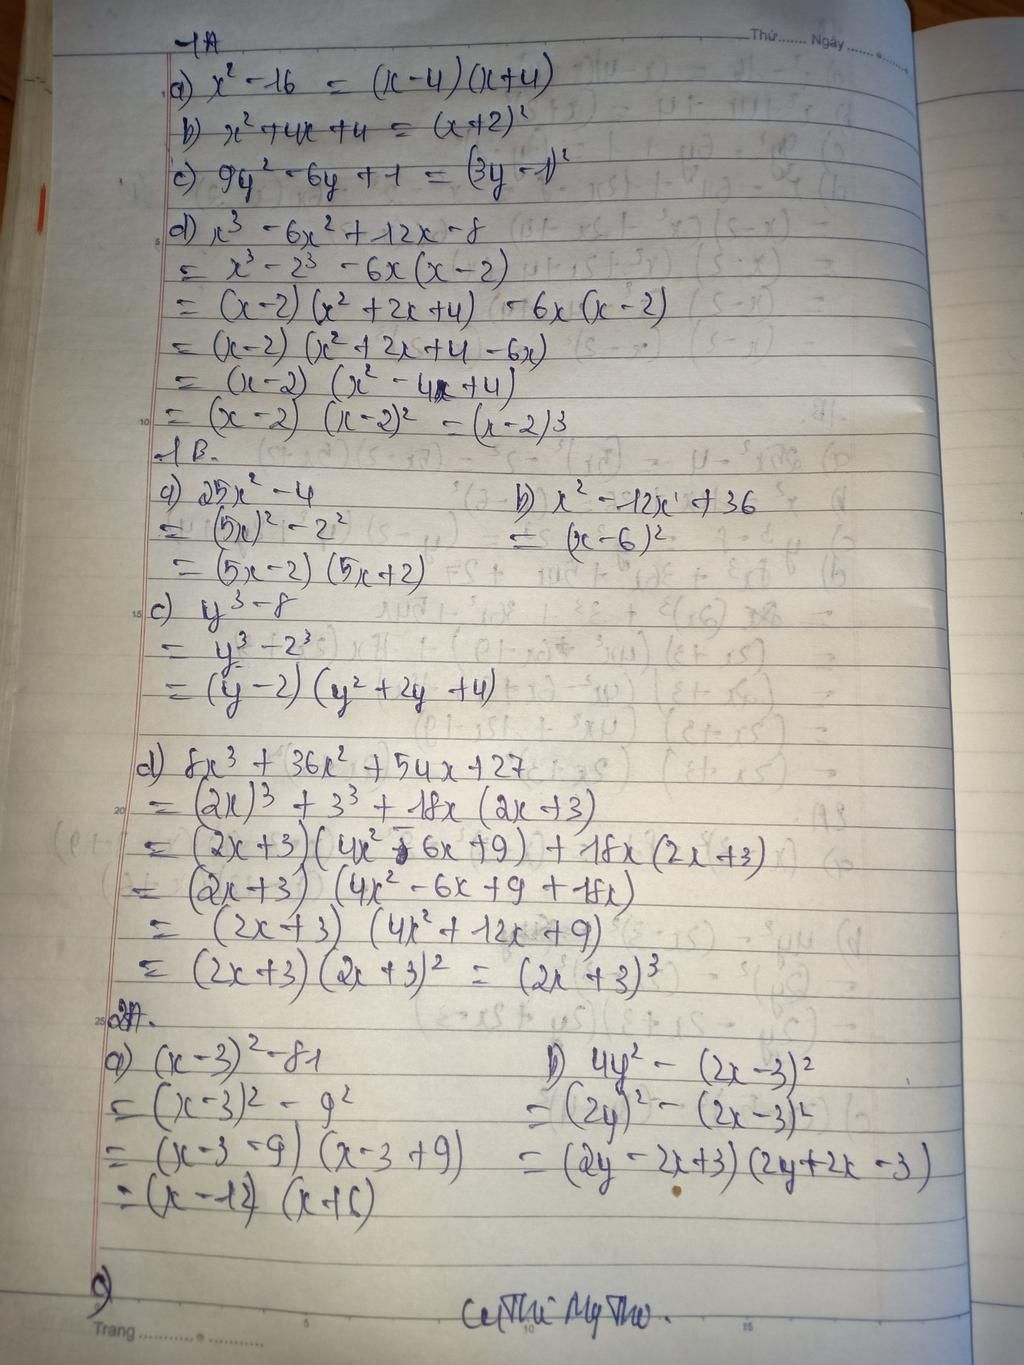 Thứ....... Ngày.......
1A
a) x² - 16 = (x-4)(x+4)
b) x² + 4x + 4 = (x+2)²
c) 9y² - 6y + 1 = (3y - 1)²
d) x³ - 6x² + 12x - 8
= x³ - 2³ - 6x(x-2)
= (x-2)(x² + 2x + 4) - 6x(x-2)
= (x-2)(x² + 2x + 4 - 6x)
= (x-2)(x² - 4x + 4)
= (x-2)(x-2)² = (x-2)3
1B.
a) 25x² - 4
= (5x)² - 2²
= (5x-2)(5x+2)
b) x² - 12x + 36
= (x-6)²
c) y³ - 8
= y³ - 2³
= (y-2)(y² + 2y + 4)
d) 8x³ + 36x² + 54x + 27
= (2x)³ + 3³ + 18x(2x+3)
= (2x+3)(4x² - 6x + 9) + 18x(2x+3)
= (2x+3)(4x² - 6x + 9 + 18x)
= (2x+3)(4x² + 12x + 9)
= (2x+3)(2x+3)² = (2x+3)³
2A.
a) (x-3)² - 81
= (x-3)² - 9²
= (x-3-9)(x-3+9)
= (x-12)(x+6)
b) 4y² - (2x-3)²
= (2y)² - (2x-3)²
= (2y-2x+3)(2y+2x-3)
c)
Thi My Tho.
Trang
5 10 15 20 25
5 10 15